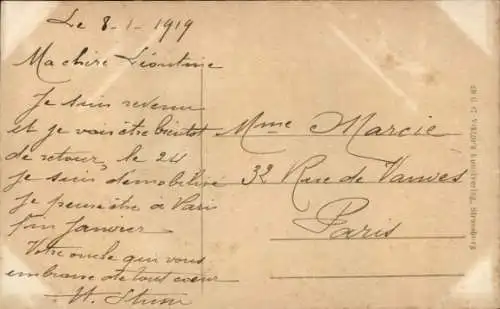 Le 8-1-1919
Ma chère Léontine
Je suis revenu
et je vais être bientôt
de retour, le 24
je suis démobilisé
je pense être à Paris
fin Janvier
Votre oncle qui vous
embrasse de tout coeur
Mme Marcie
32 Rue de Vanves
Paris